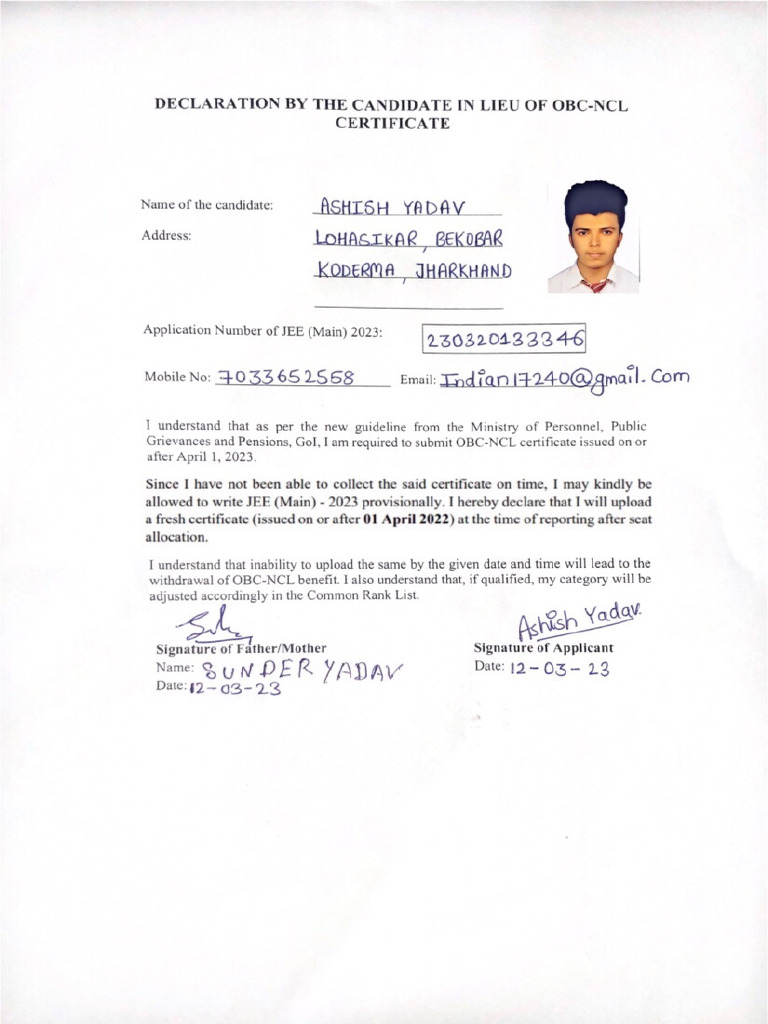 DECLARATION BY THE CANDIDATE IN LIEU OF OBC-NCL
CERTIFICATE
Name of the candidate: ASHISH YADAV
Address: LOHASIKAR, BEKOBAR
KODERMA, JHARKHAND
Application Number of JEE (Main) 2023: 230320133346
Mobile No: 7033652558 Email: Indian17240@gmail.com
I understand that as per the new guideline from the Ministry of Personnel, Public
Grievances and Pensions, GoI, I am required to submit OBC-NCL certificate issued on or
after April 1, 2023.
Since I have not been able to collect the said certificate on time, I may kindly be
allowed to write JEE (Main) - 2023 provisionally. I hereby declare that I will upload
a fresh certificate (issued on or after 01 April 2022) at the time of reporting after seat
allocation.
I understand that inability to upload the same by the given date and time will lead to the
withdrawal of OBC-NCL benefit. I also understand that, if qualified, my category will be
adjusted accordingly in the Common Rank List.
Ashish Yadav
Signature of Father/Mother Signature of Applicant
Name: SUNDER YADAV Date: 12-03-23
Date: 12-03-23